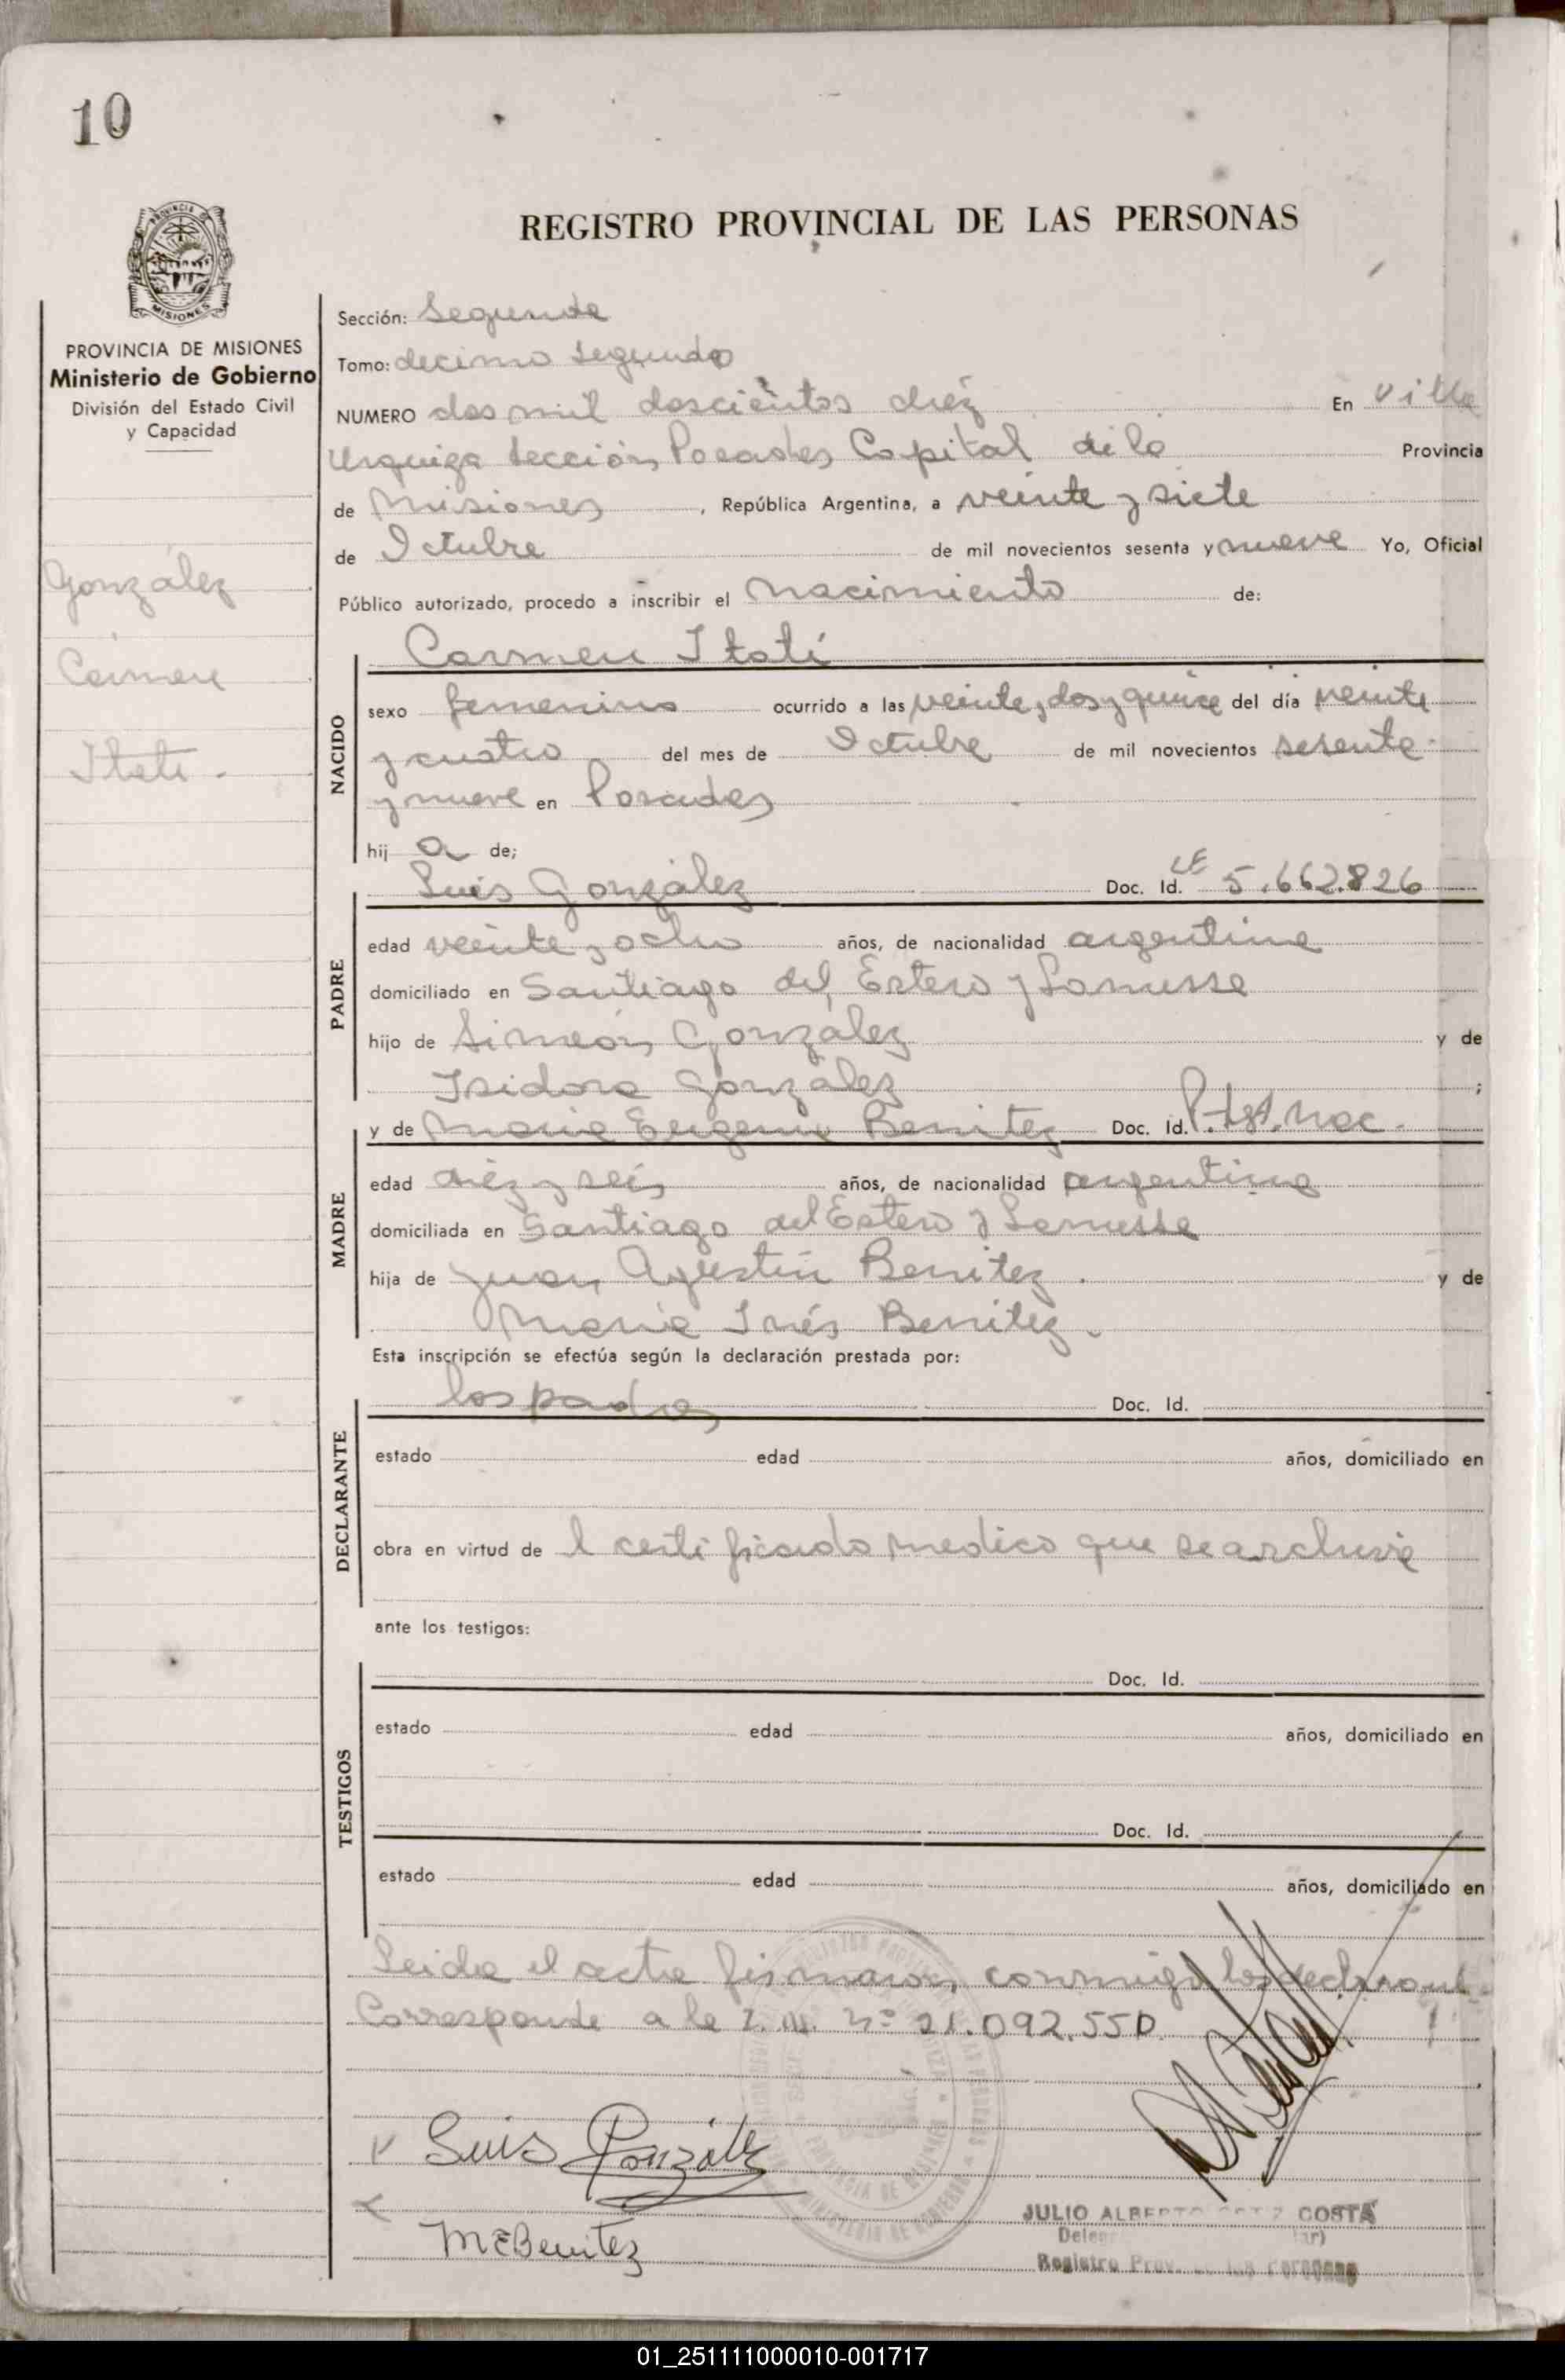 10
REGISTRO PROVINCIAL DE LAS PERSONAS
PROVINCIA DE MISIONES
Ministerio de Gobierno
División del Estado Civil
y Capacidad
González
Carmen
Itati.
Sección: Segunda
Tomo: decimo segundo
NUMERO dos mil doscientos diéz En Villa
Urquiza Sección Posadas Capital de la Provincia
de Misiones, República Argentina, a veinte y siete
de Octubre de mil novecientos sesenta y nueve Yo, Oficial
Público autorizado, procedo a inscribir el nacimiento de:
Carmen Itatí
NACIDO
sexo femenino ocurrido a las veinte y dos y quince del día veinte
y cuatro del mes de Octubre de mil novecientos sesenta
y nueve en Posadas
hij a de;
Luis González Doc. Id. LE 5.662.826
PADRE
edad veinte y ocho años, de nacionalidad argentina
domiciliado en Santiago del Estero y Lanusse
hijo de Simeón González y de
Isidora González ;
y de Maria Eugenia Benitez Doc. Id. P. Ist. Nac.
MADRE
edad diéz y seis años, de nacionalidad argentina
domiciliada en Santiago del Estero y Lanusse
hija de Juan Agustin Benitez. y de
Maria Inés Benitez.
Esta inscripción se efectúa según la declaración prestada por:
los padres Doc. Id.
DECLARANTE
estado edad años, domiciliado en
obra en virtud de l certificado medico que se archiva
ante los testigos:
Doc. Id.
TESTIGOS
estado edad años, domiciliado en
Doc. Id.
estado edad años, domiciliado en
Leida el acta firmaron conmigo los declarant
Corresponde a la I. M. Nº 21.092.550
Luis González
MEBenitez
JULIO ALBERTO COSTA
Registro Prov. de las Personas
01_251111000010-001717